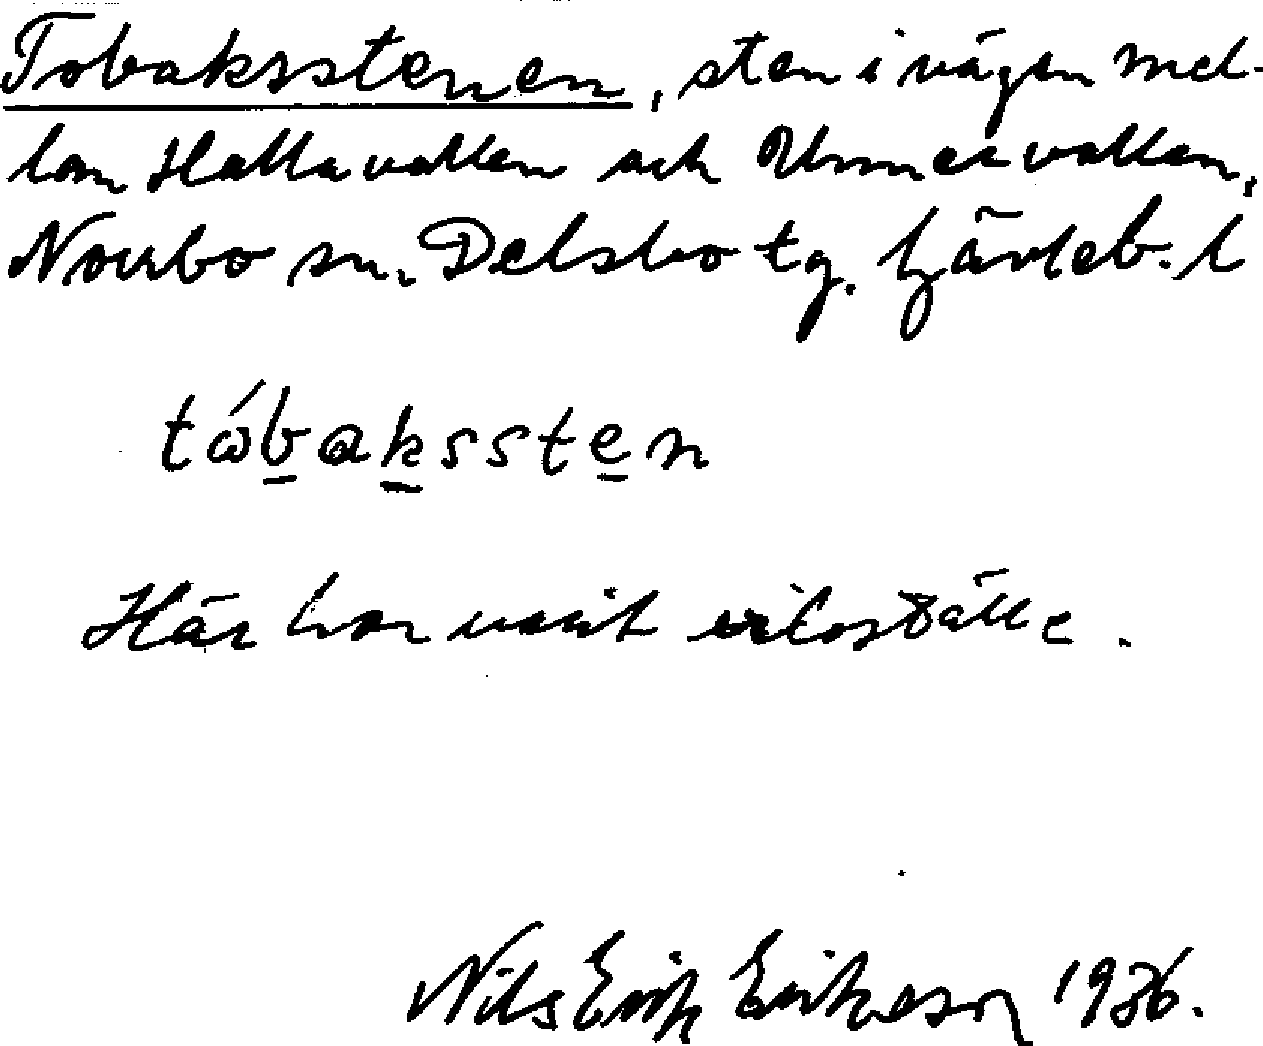 Tobaksstenen, sten i vägen mel-
lan Hallavallen och Unnesvallen,
Norrbo sn. Delsbo tg. Gävleb. l
tớbaksstɛn
Här har varit viloställe.
Nils Erik Erikson 1936.